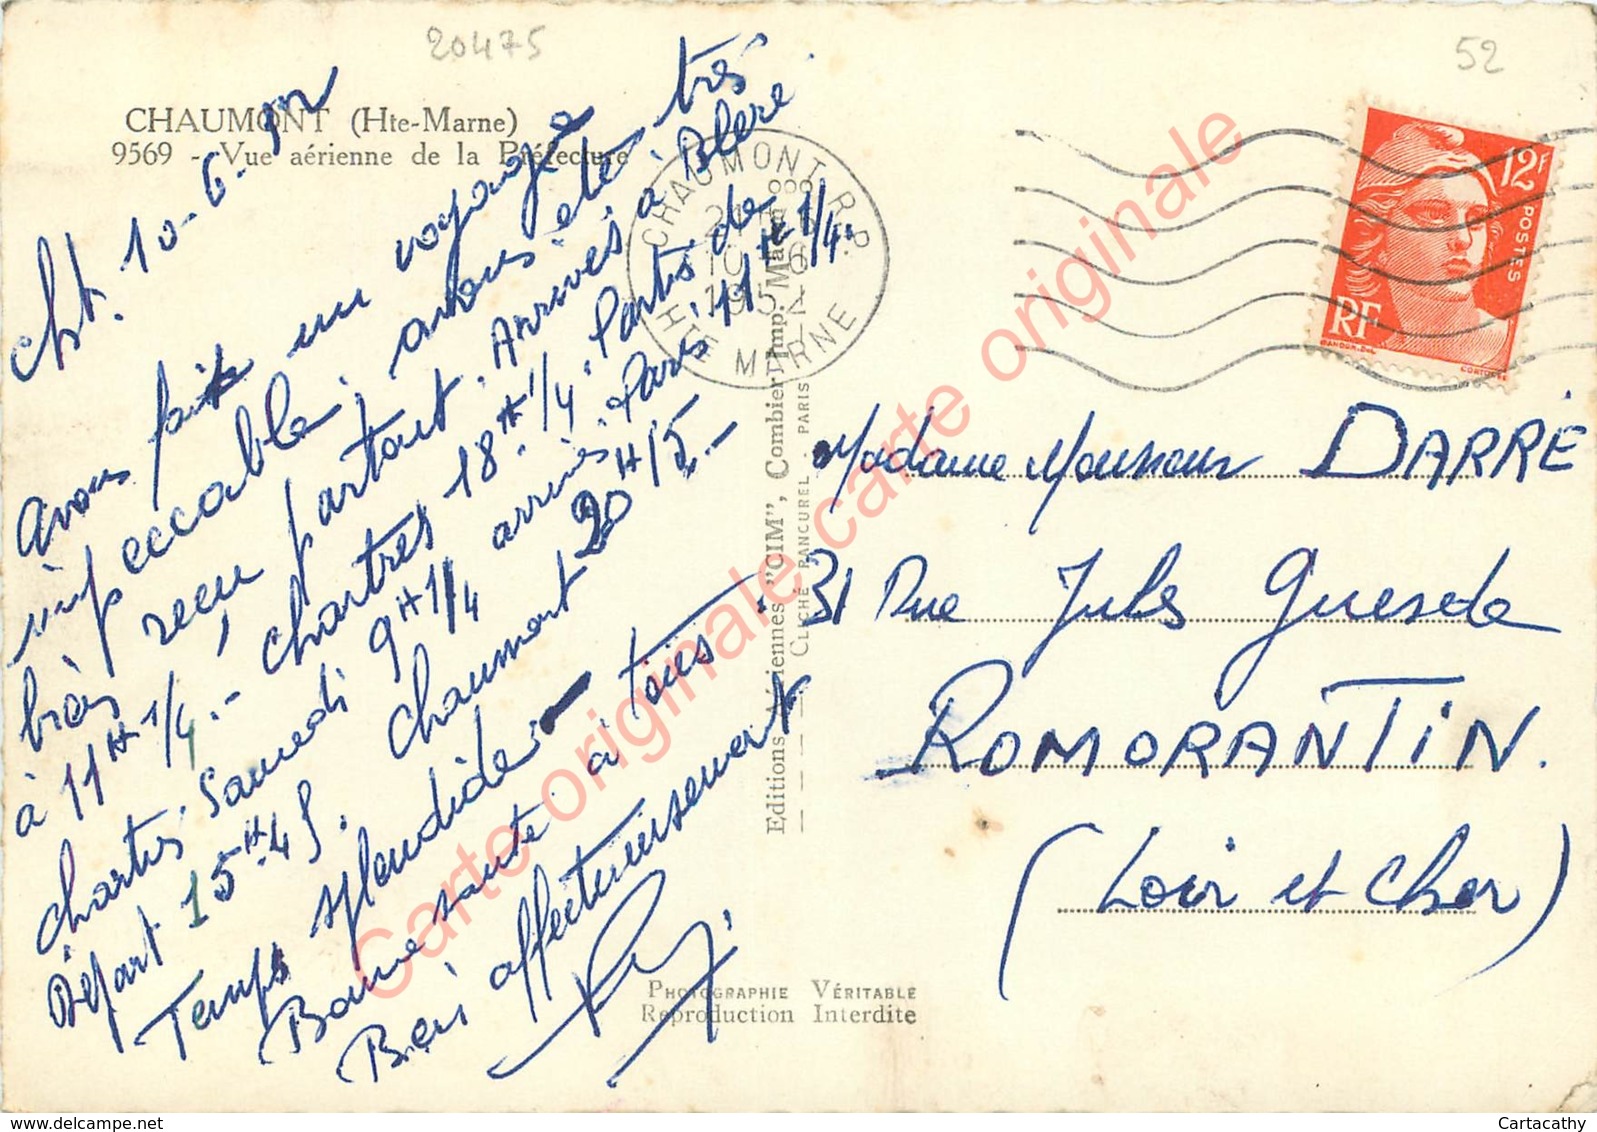 20475
52
CHAUMONT (Hte-Marne)
9569 - Vue aérienne de la Préfecture
Cht. 10-6-52
Avons fait un voyage
impeccable, avons été très
bien reçu partout. Arrivés à Bléré
à 11H 1/4.- Partis de
Chartres 18H 1/4. 11H 1/4.
Chartres. Samedi 9H 1/4 arrivés Paris
Départ 15H.45. Chaumont 20H15.-
Temps splendide -
Bonne santé à toies.
Bien affectueusement
CHAUMONT R.P.
10 - 6
1952
HTE MARNE
12F
POSTES
RF
GANDON
CORTOT
Editions Aériennes "CIM", Combier Imp. Macon
CLICHÉ RANCUREL - PARIS
Madame Monsieur DARRÉ
31 Rue Jules Guesde
ROMORANTIN.
(Loir et Cher)
PHOTOGRAPHIE VÉRITABLE
Reproduction Interdite
Carte originale carte originale
Cartacathy